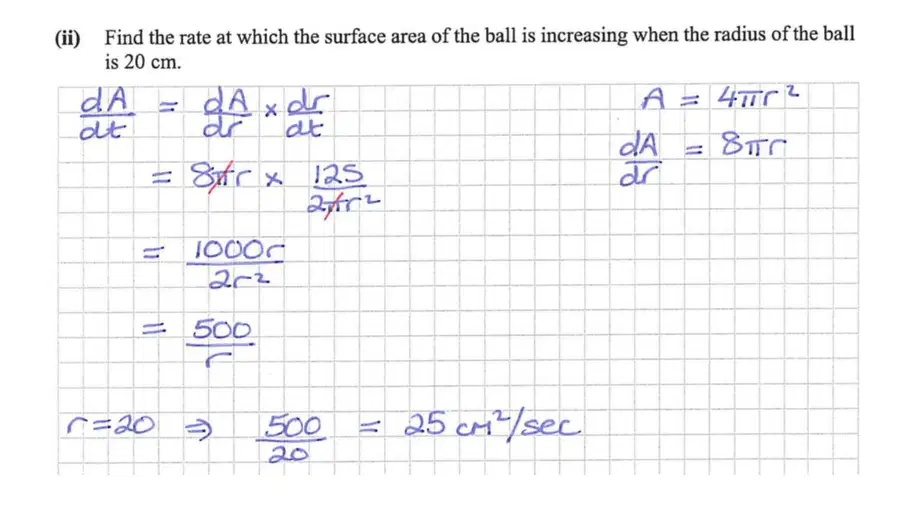 (ii) Find the rate at which the surface area of the ball is increasing when the radius of the ball
is 20 cm.
dA/dt = dA/dr × dr/dt
A = 4πr²
dA/dr = 8πr
= 8πr × 125/2πr²
= 1000r/2r²
= 500/r
r=20 ⇒ 500/20 = 25 cm²/sec